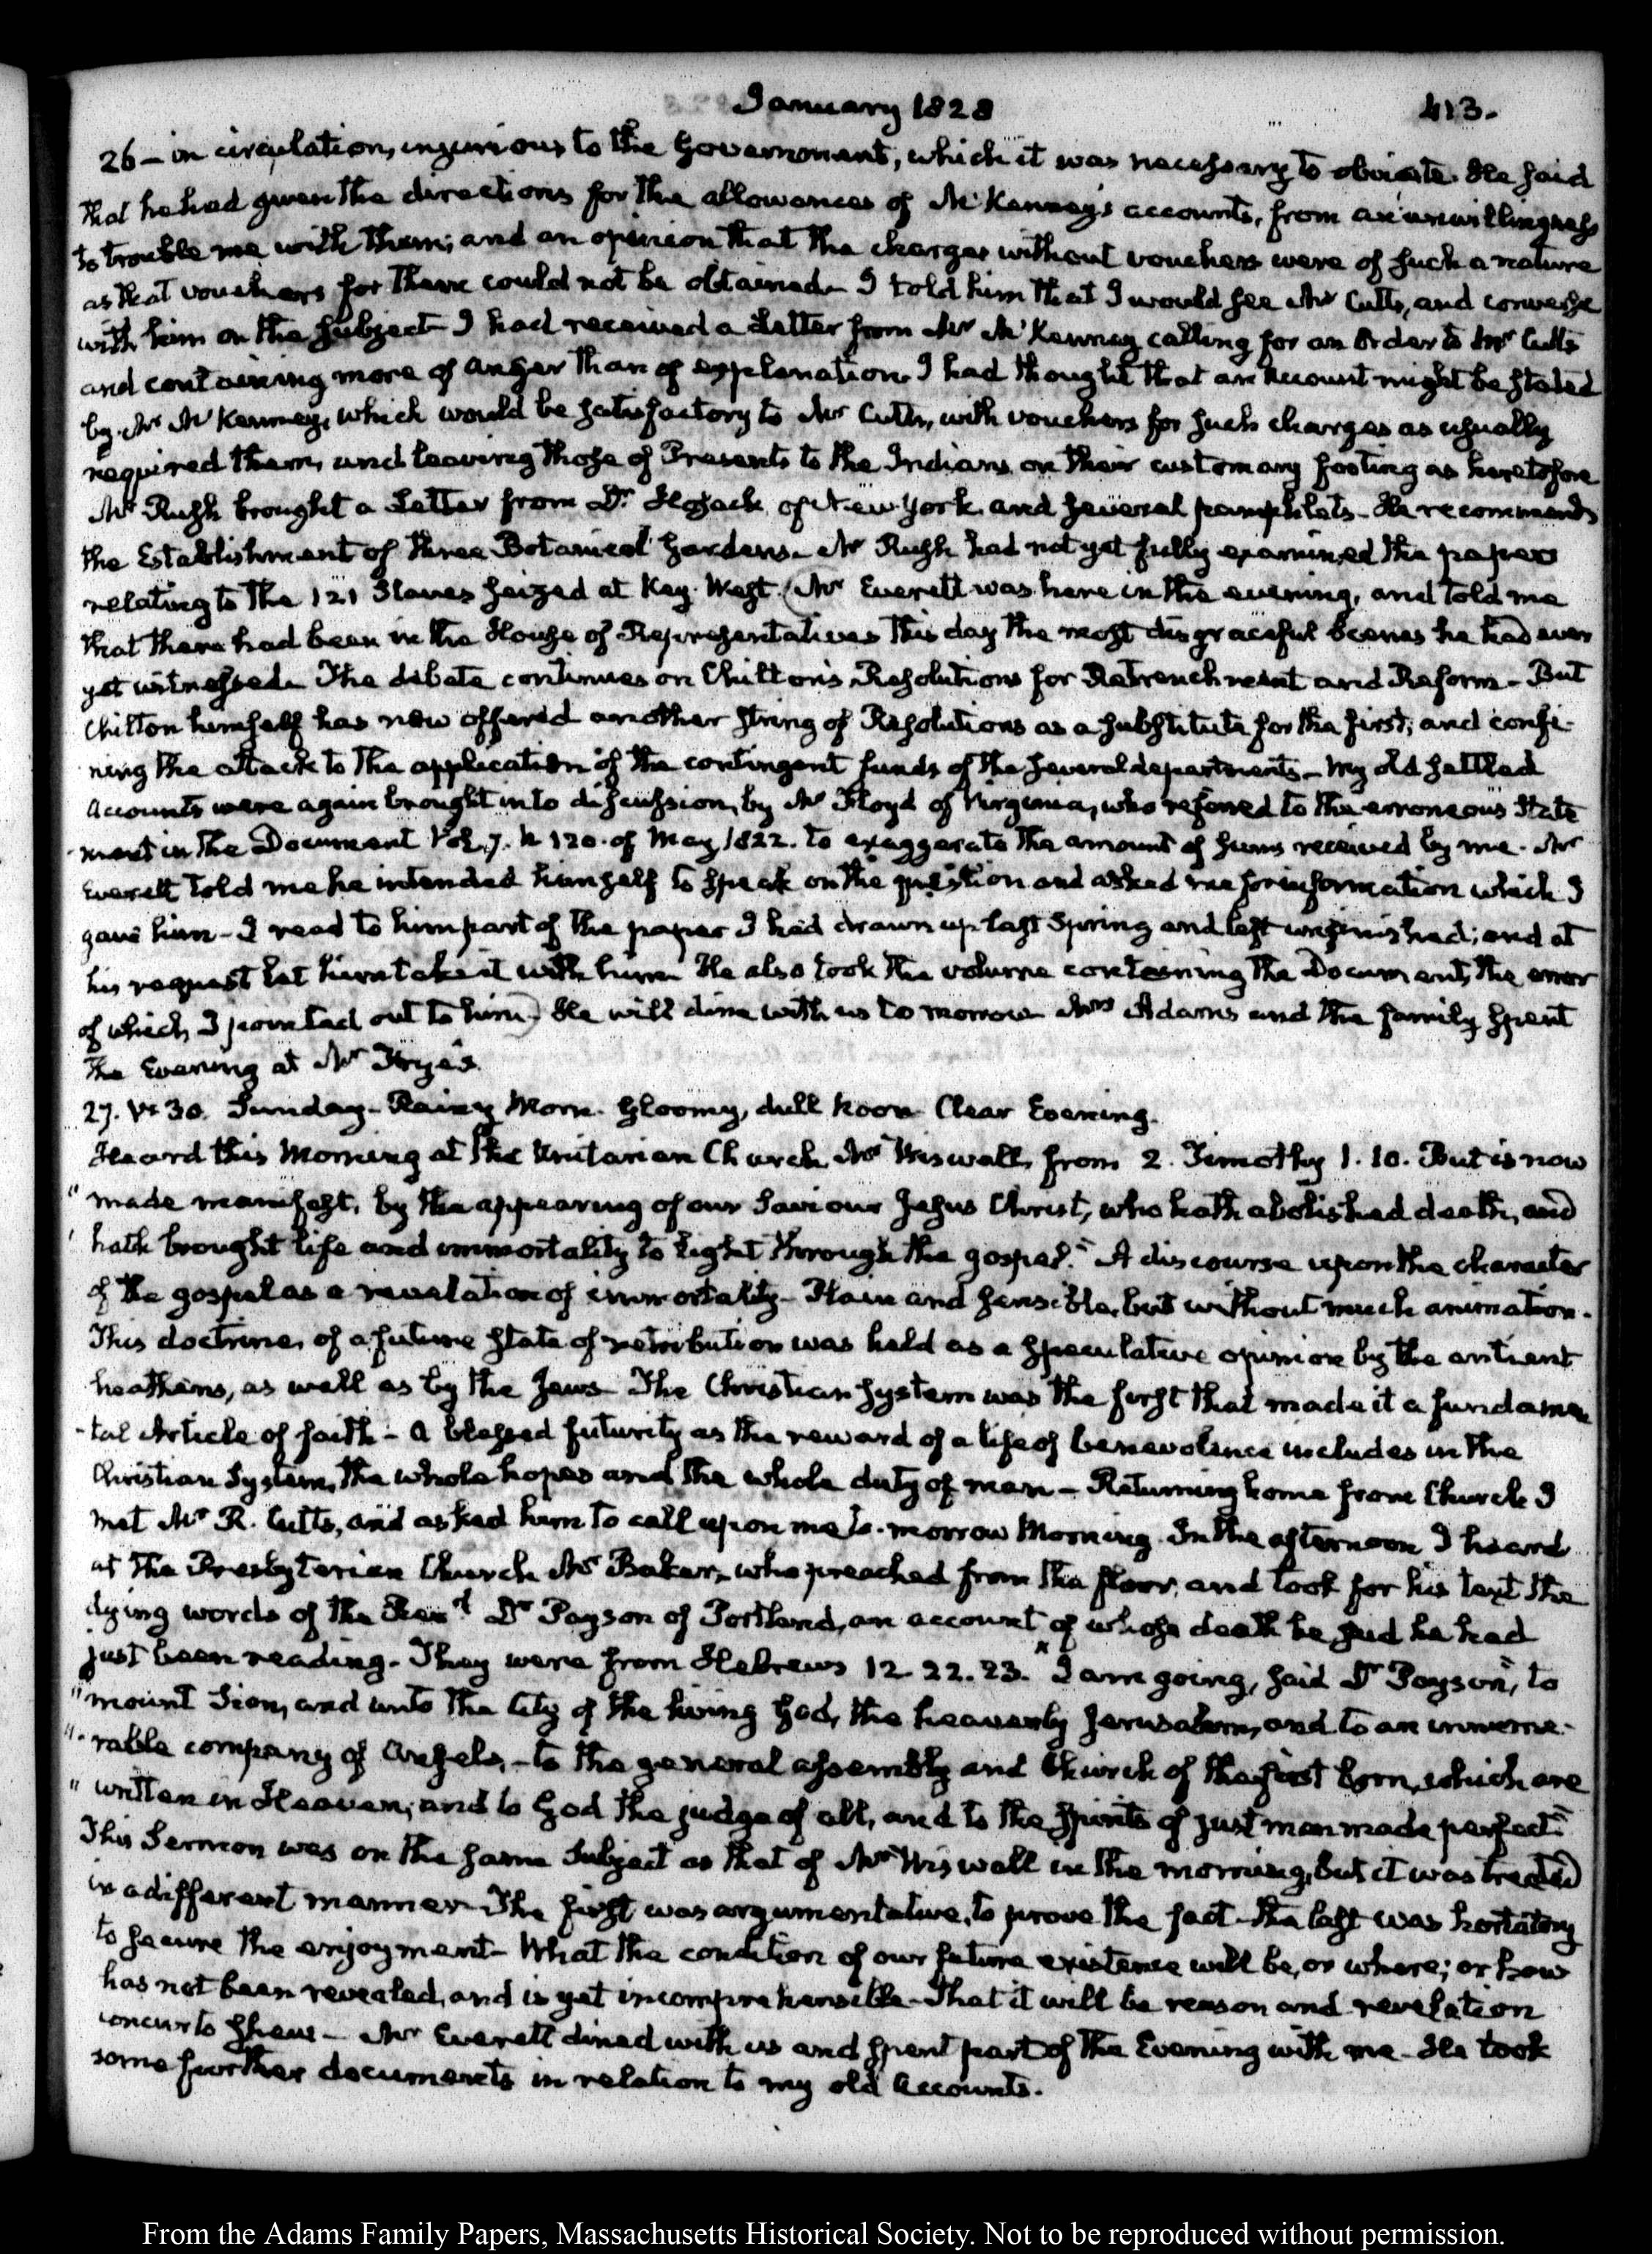 January 1828
413.
26 — in circulation, injurious to the Government, which it was necessary to obviate. He said
that he had given the directions for the allowances of McKenney's accounts, from an unwillingness
to trouble me with them; and an opinion that the charges without vouchers were of such a nature
as that vouchers for them could not be obtained. I told him that I would see Mr Cutts, and converse
with him on the subject — I had received a Letter from Mr McKenney calling for an Order to Mr Cutts
and containing more of anger than of explanation. I had thought that an Account might be stated
by Mr McKenney, which would be satisfactory to Mr Cutts, with vouchers for such charges as usually
required them, and leaving those of Presents to the Indians, on their customary footing as heretofore
Mr Rush brought a Letter from Dr Hosack, of New York, and several pamphlets — He recommends
the Establishment of three Botanical Gardens. Mr Rush had not yet fully examined the papers
relating to the 121 Slaves seized at Key-West. (Mr Everett was here in the evening, and told me
that there had been in the House of Representatives this day the most disgraceful scenes he had ever
yet witnessed. The debate continues on Chilton's Resolutions for Retrenchment and Reform — But
Chilton himself has now offered another string of Resolutions as a substitute for the first; and confi-
ning the attack to the application of the contingent funds of the several departments — My old settled
Accounts were again brought into discussion, by Mr Floyd of Virginia, who referred to the erroneous State
-ment in the Document Vol. 7. N. 120. of May 1822. to exaggerate the amount of sums received by me. Mr
Everett told me he intended himself to speak on the question and asked me for information which I
gave him — I read to him part of the paper I had drawn up last Spring and left unfinished; and at
his request let him take it with him. He also took the volume containing the Document, the error
of which I pointed out to him) He will dine with us to morrow. Mrs Adams and the family spent
the Evening at Mr Frye's.
27. V: 30. Sunday — Rainy Morn. Gloomy, dull Noon. Clear Evening.
Heard this Morning at the Unitarian Church Mr Wiswall, from 2. Timothy 1. 10. But is now
" made manifest, by the appearing of our Saviour Jesus Christ, who hath abolished death, and
" hath brought life and immortality to light through the gospel." A discourse upon the character
of the gospel as a revelation of immortality — Plain and sensible, but without much animation.
This doctrine, of a future state of retribution was held as a speculative opinion by the antient
heathens, as well as by the Jews — The Christian system was the first that made it a fundamen
-tal Article of faith — A blessed futurity as the reward of a life of benevolence includes in the
Christian System, the whole hopes and the whole duty of man — Returning home from Church I
met Mr R. Cutts, and asked him to call upon me to-morrow Morning. In the afternoon I heard
at the Presbyterian Church Mr Baker, who preached from the floor, and took for his text the
dying words of the Revd Dr Payson of Portland, an account of whose death he said he had
just been reading — They were from Hebrews 12. 22. 23. "I am going, said Dr Payson, "to
" mount Sion, and unto the City of the living God, the heavenly Jerusalem, and to an innume-
" -rable company of Angels, — to the general assembly and Church of the first born, which are
" written in Heaven; and to God the judge of all, and to the spirits of just men made perfect."
This Sermon was on the same subject as that of Mr Wiswall in the morning, but it was treated
in a different manner. The first was argumentative, to prove the fact — the last was hortatory
to secure the enjoyment — What the condition of our future existence will be, or where; or how
has not been revealed, and is yet incomprehensible — That it will be reason and revelation
concur to shew — Mr Everett dined with us and spent part of the Evening with me — He took
some further documents in relation to my old Accounts.
From the Adams Family Papers, Massachusetts Historical Society. Not to be reproduced without permission.